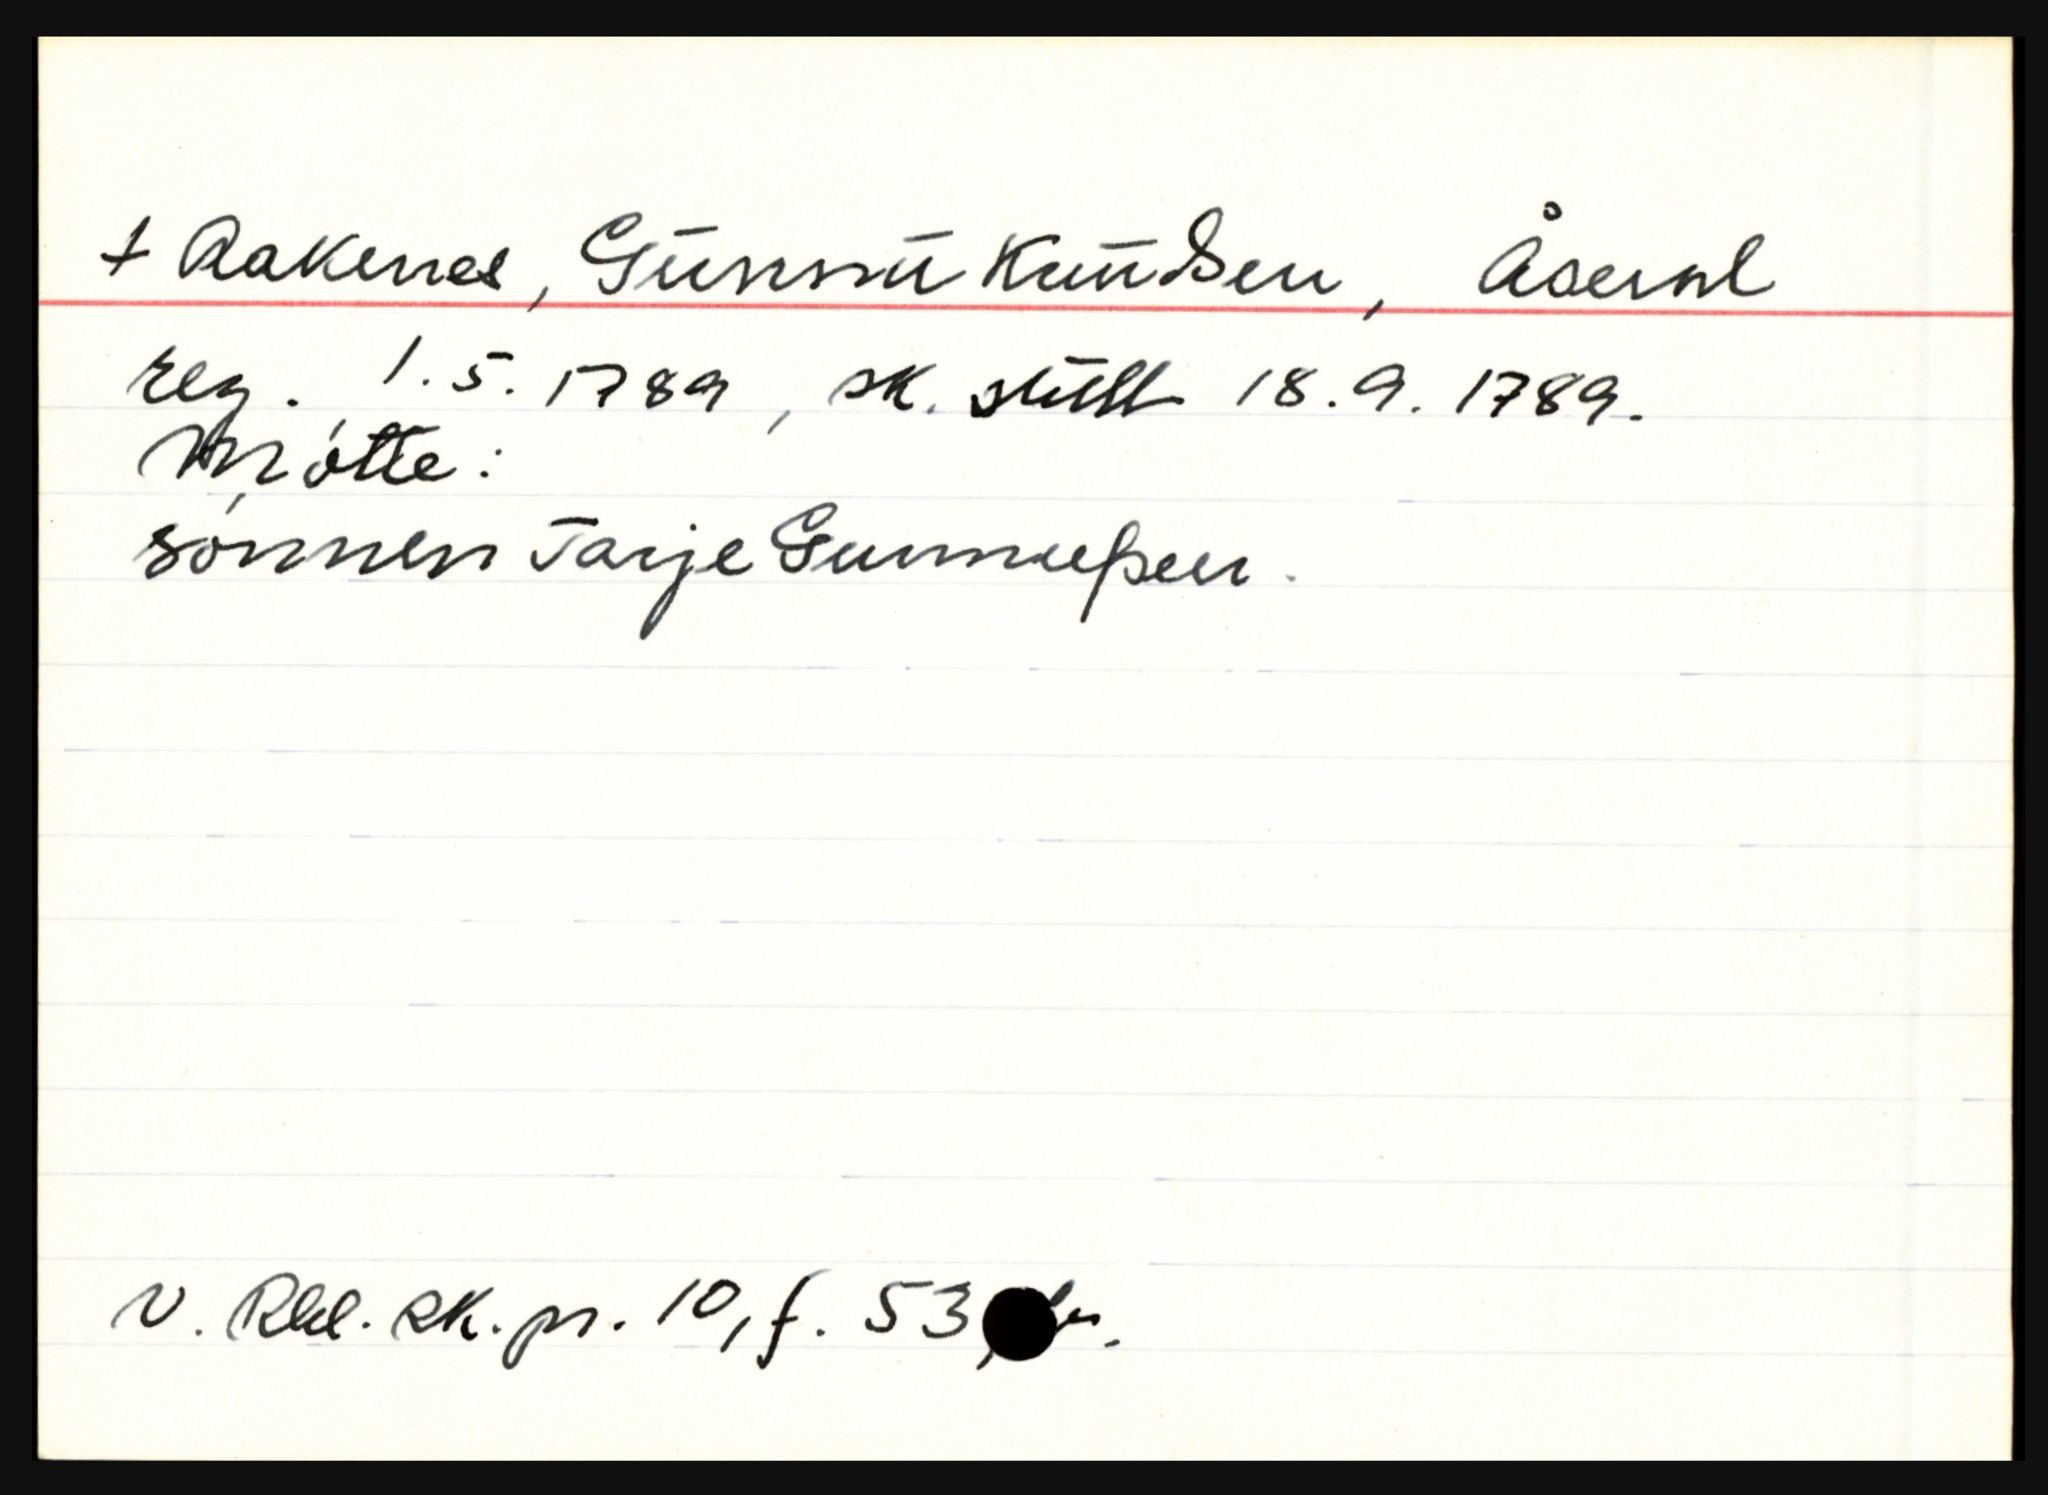 † Aakenes, Gunnu Knudsen, Åseral
reg. 1.5.1789, sk. slutt 18.9.1789.
Møtte:
sønnen Tarje Gunnueßen.
V. Rbl. sk. pr. 10, f. 53,